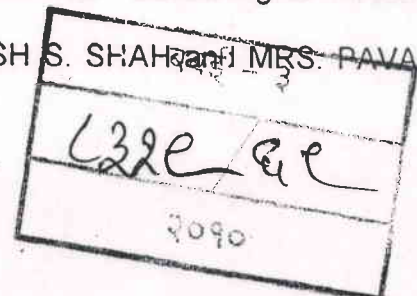 SH S. SHAH and MRS. PAVA
- ३
८३२९ / ६९
२०१०